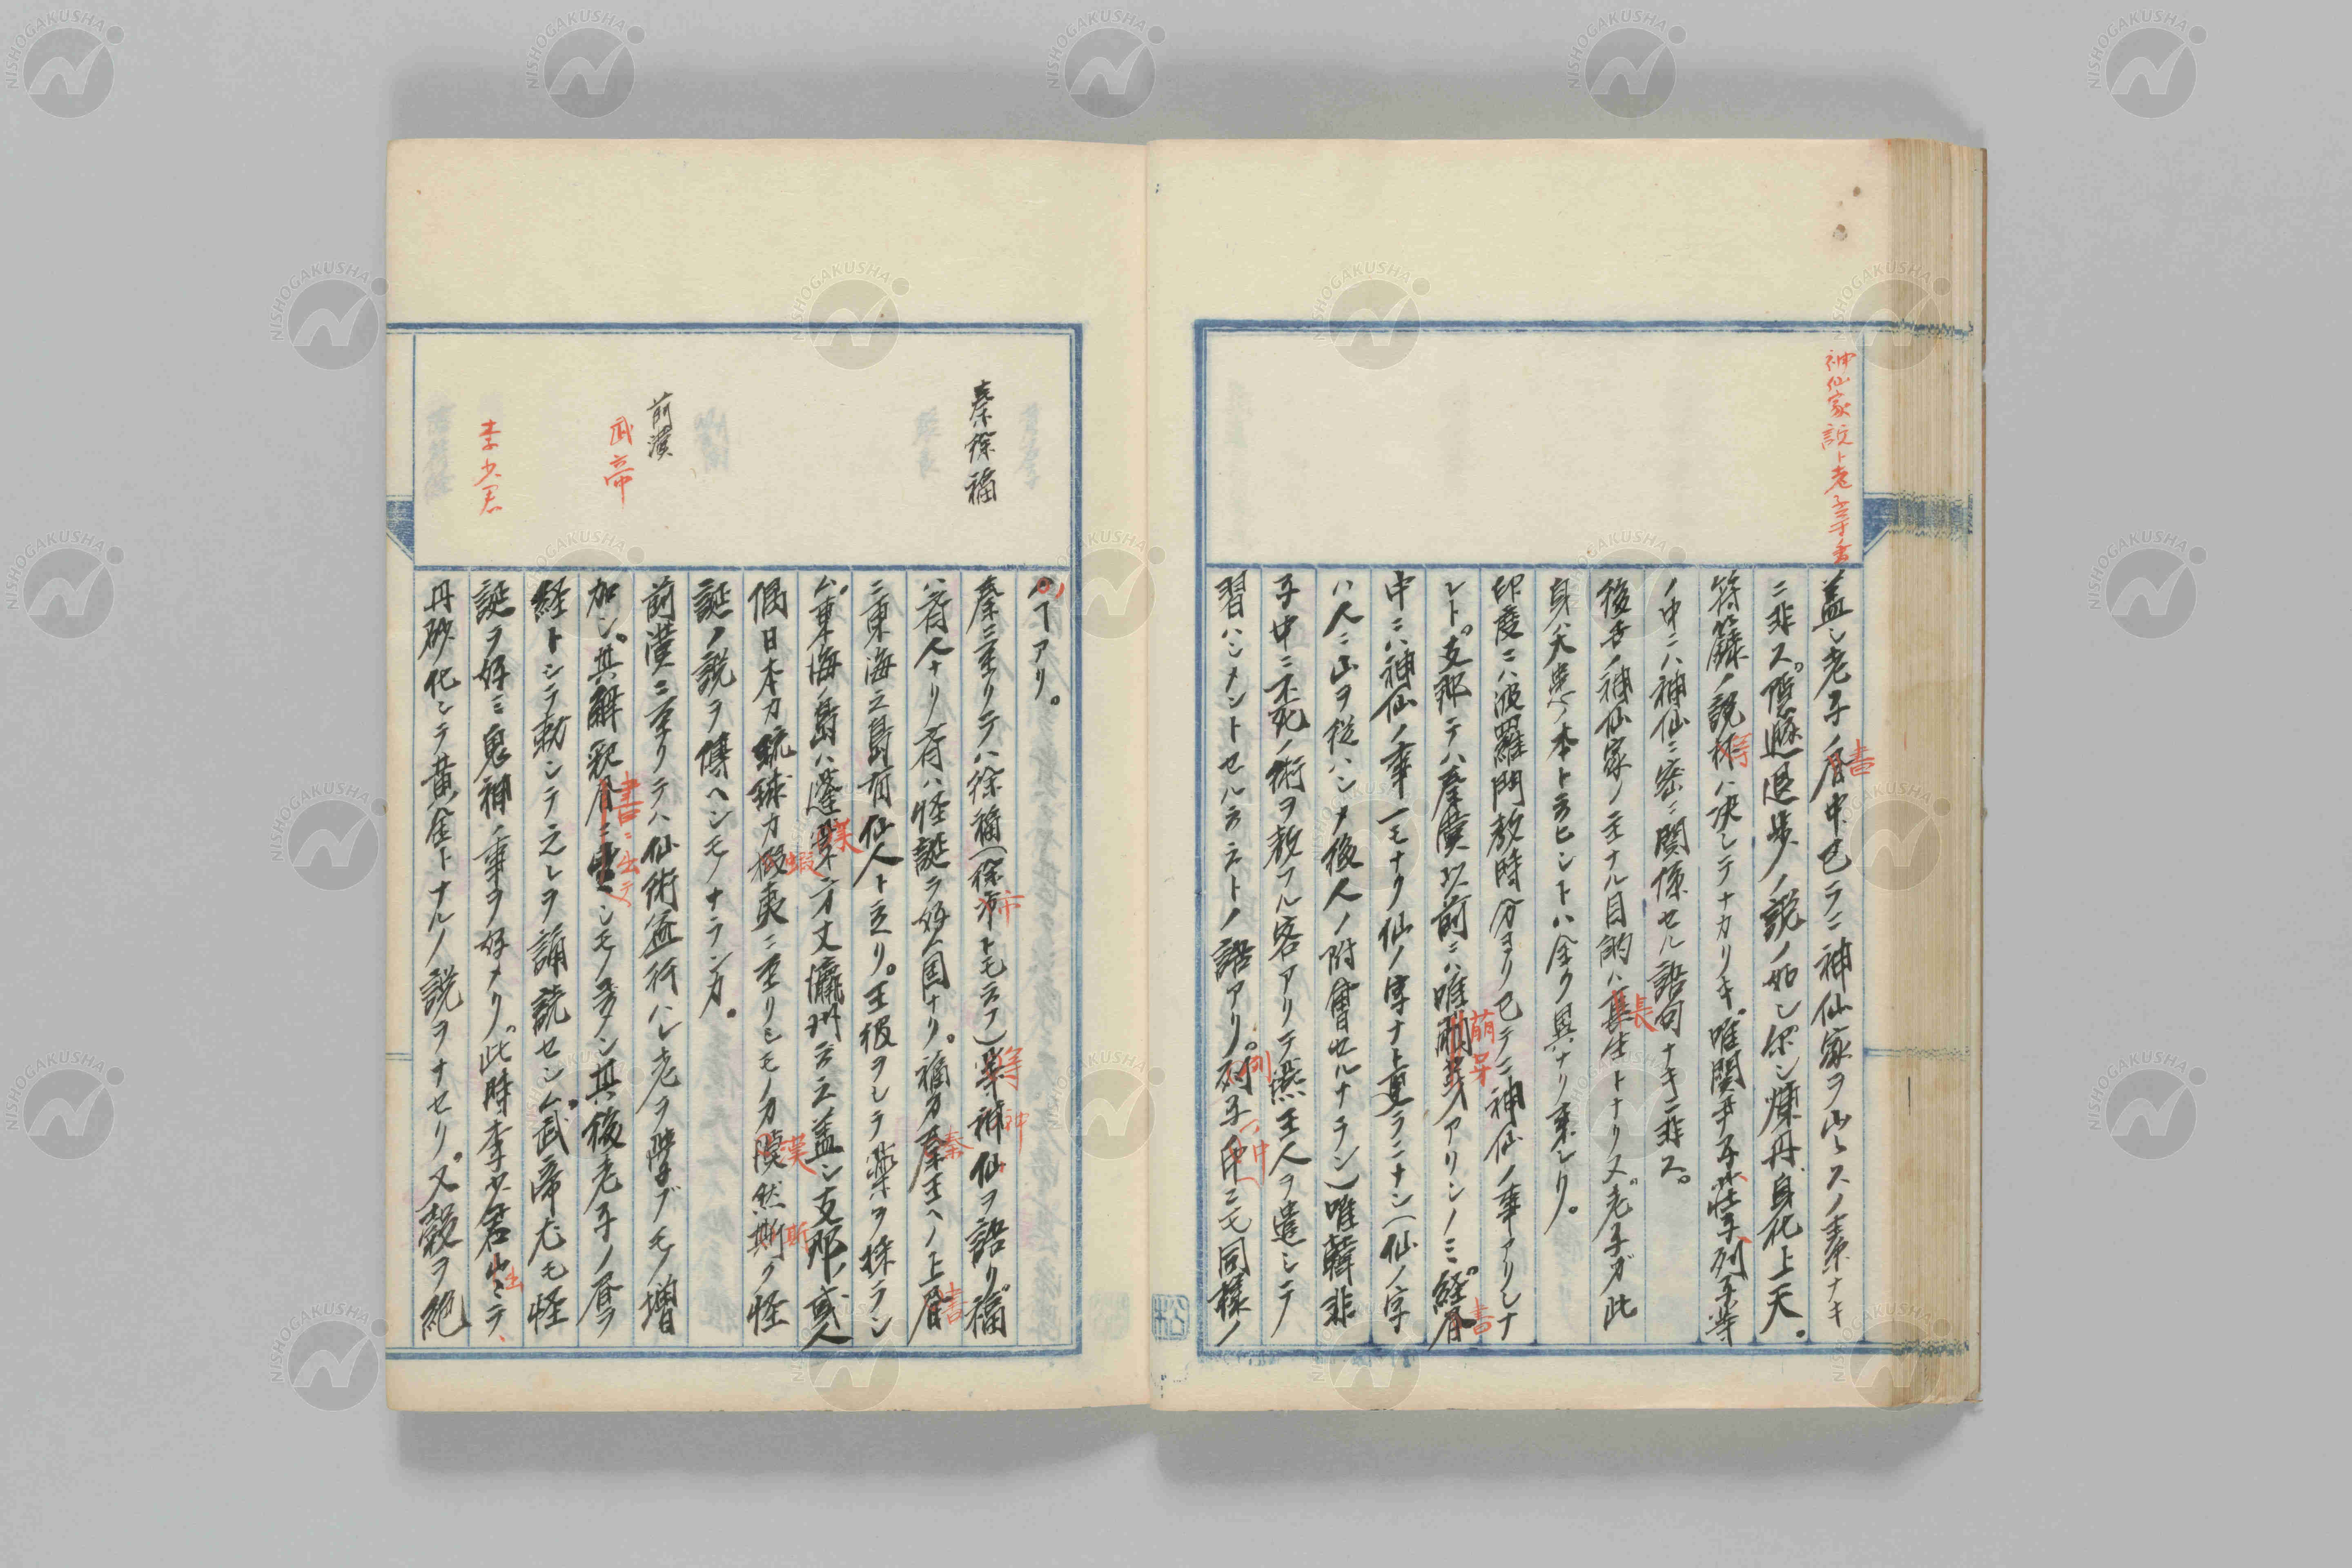 神仙家説ト老子等書
蓋シ老子ノ書中已ラニ神仙家ヲ出スノ素ナキ
ニ非ス。隠遯退歩ノ説ノ如シ尓シ煉丹、身化上天。
符籙ノ説抔ハ决シテナカリキ。唯関尹子、荘子、列子等
ノ中ニハ神仙ニ密ニ関係セル語句ナキニ非ス。
後世ノ神仙家ノ主ナル目的ハ長生トナリヌ。老子ガ此
身ハ大患ノ本ト云ヒシトハ全ク異ナリ来レリ。
印度ニハ波羅門教時分ヨリ已テニ神仙ノ事アリシナ
レト。支那テハ秦漢以前ニハ唯萌芽アリシノミ。経書
中ニハ神仙ノ事一モナク仙ノ字ナト更ラニナシ（仙ノ字
ハ人ニ山ヲ従ハシメ後人ノ附會セルナラン）唯韓非
子中ニ不死ノ術ヲ教フル客アリテ燕王人ヲ遣シテ
習ハシメントセル云々トノ語アリ。列子中ニモ同様ノ
ヿアリ。
秦徐福
秦ニ至リテハ徐福（徐市トモ云フ）等神仙ヲ語リ。福
ハ齊人ナリ齊ハ怪誕ヲ好ム国ナリ。福カ秦王ヘノ上書
ニ東海之島有仙人ト云リ。王彼ヲシテ薬ヲ採ラシ
ム。東海ノ島ハ蓬莱方丈瀛洲云々蓋シ支那ノ或人
偶日本カ琉球カ蝦夷ニ至リシモノカ漠然斯ク怪
誕ノ説ヲ傳ヘシモノナランカ。
前漢
前漢ニ至リテハ仙術盛行ハレ老ヲ學ブモノ増
武帝
加シ。其解釈書ニ出テシモノ多シ其後老子ノ書ヲ
経トシラ勅シテ之レヲ誦読セシム。武帝尤モ怪
李少君
誕ヲ好ミ鬼神ノ事ヲ好メリ。此時李少君出テ、
丹砂化シテ黄金トナルノ説ヲナセリ。又穀ヲ絶
松
NISHOGAKUSHA